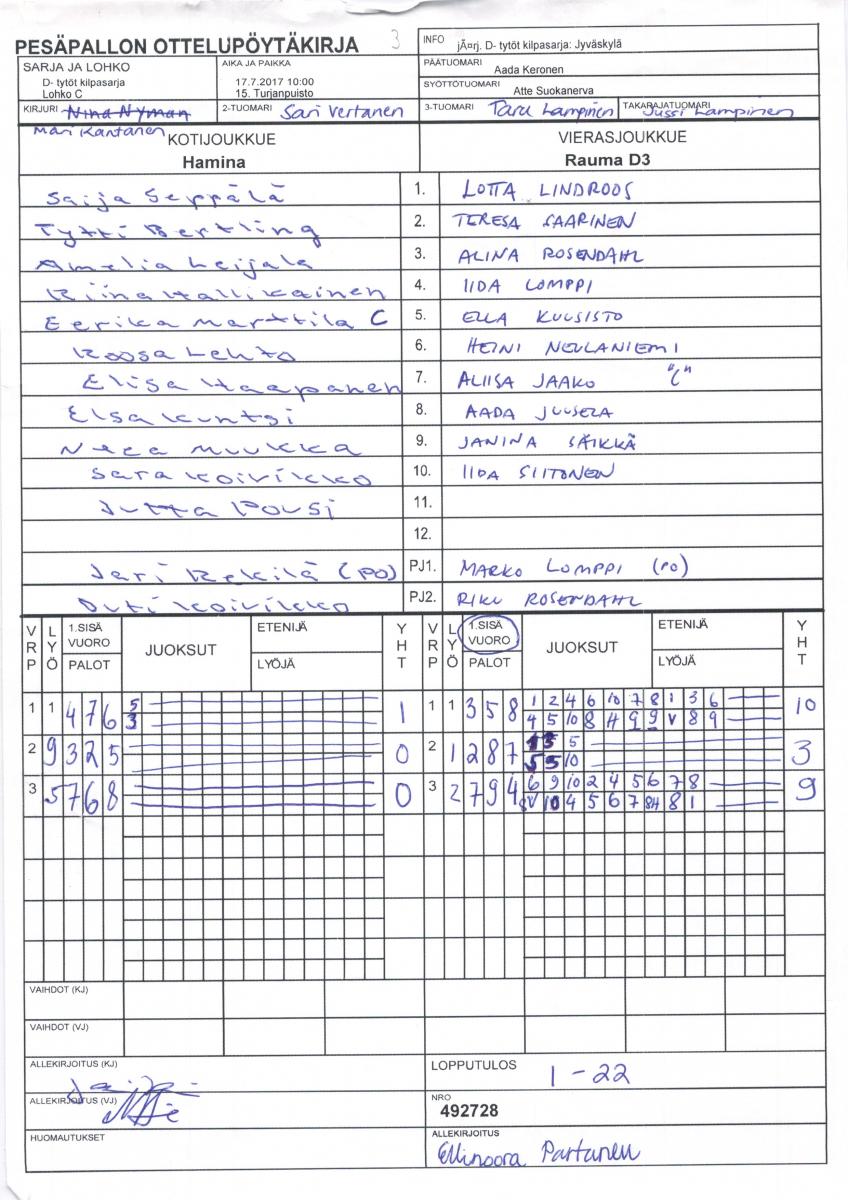 PESÄPALLON OTTELUPÖYTÄKIRJA
3
INFO jÃ¤rj. D- tytöt kilpasarja: Jyväskylä
SARJA JA LOHKO
D- tytöt kilpasarja
Lohko C
AIKA JA PAIKKA
17.7.2017 10:00
15. Turjanpuisto
PÄÄTUOMARI
Aada Keronen
SYÖTTÖTUOMARI
Atte Suokanerva
KIRJURI Nina Nyman
Mari Kantanen
2-TUOMARI Sari Vertanen
3-TUOMARI Taru Lampinen
TAKARAJATUOMARI Jussi Lampinen
KOTIJOUKKUE
Hamina
VIERASJOUKKUE
Rauma D3
Saija Seppälä 1. LOTTA LINDROOS
Tytti Bertling 2. TERESA SAARINEN
Amelia Leijala 3. ALINA ROSENDAHL
Riina Hallikainen 4. IIDA LOMPPI
Eerika Marttila C 5. ELLA KUUSISTO
Roosa Lehto 6. HEINI NEULANIEMI
Elisa Haapanen 7. ALIISA JAAKO "C"
Elsa Kuntsi 8. AADA JUUSELA
Neea Muukka 9. JANINA SÄIKKÄ
Sara Koivikko 10. IIDA SIITONEN
Jutta Pousi 11.
12.
Jari Rekilä (PO) PJ1. MARKO LOMPPI (PO)
Outi Koivikko PJ2. RIKU ROSENDAHL
VRP LYÖ 1.SISÄ VUORO PALOT JUOKSUT ETENIJÄ LYÖJÄ YHT VRP LYÖ 1.SISÄ VUORO PALOT JUOKSUT ETENIJÄ LYÖJÄ YHT
1 1 4 7 6 5 1 1 1 3 5 8 1 2 4 6 10 7 8 1 3 6 10
3 4 5 10 8 H 9 9 V 8 9
2 9 3 2 5 0 2 1 2 8 7 5 3
5 10
3 5 7 6 8 0 3 2 7 9 4 6 9 10 2 4 5 6 7 8 9
10 4 5 6 7 8H 8 1
VAIHDOT (KJ)
VAIHDOT (VJ)
ALLEKIRJOITUS (KJ)
LOPPUTULOS 1 - 22
ALLEKIRJOITUS (VJ)
NRO
492728
HUOMAUTUKSET
ALLEKIRJOITUS
Ellinoora Partanen